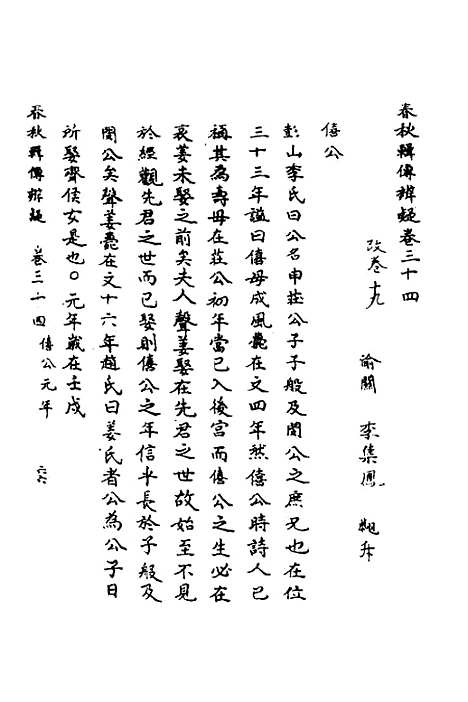 春秋輯傳辨疑卷三十四
改卷十九
渝關 李集鳳 翽升
僖公
彭山李氏曰公名申莊公子子般及閔公之庶兄也在位
三十三年諡曰僖母成風薨在文四年然僖公時詩人已
稱其為壽母在莊公初年當已入後宮而僖公之生必在
哀姜未娶之前矣夫人聲姜娶在先君之世故始至不見
於經觀先君之世而已娶則僖公之年信乎長於子般及
閔公矣聲姜薨在文十六年趙氏曰姜氏者公為公子日
所娶齊侯女是也○元年歲在壬戌
春秋輯傳辨疑 卷三十四 僖公元年